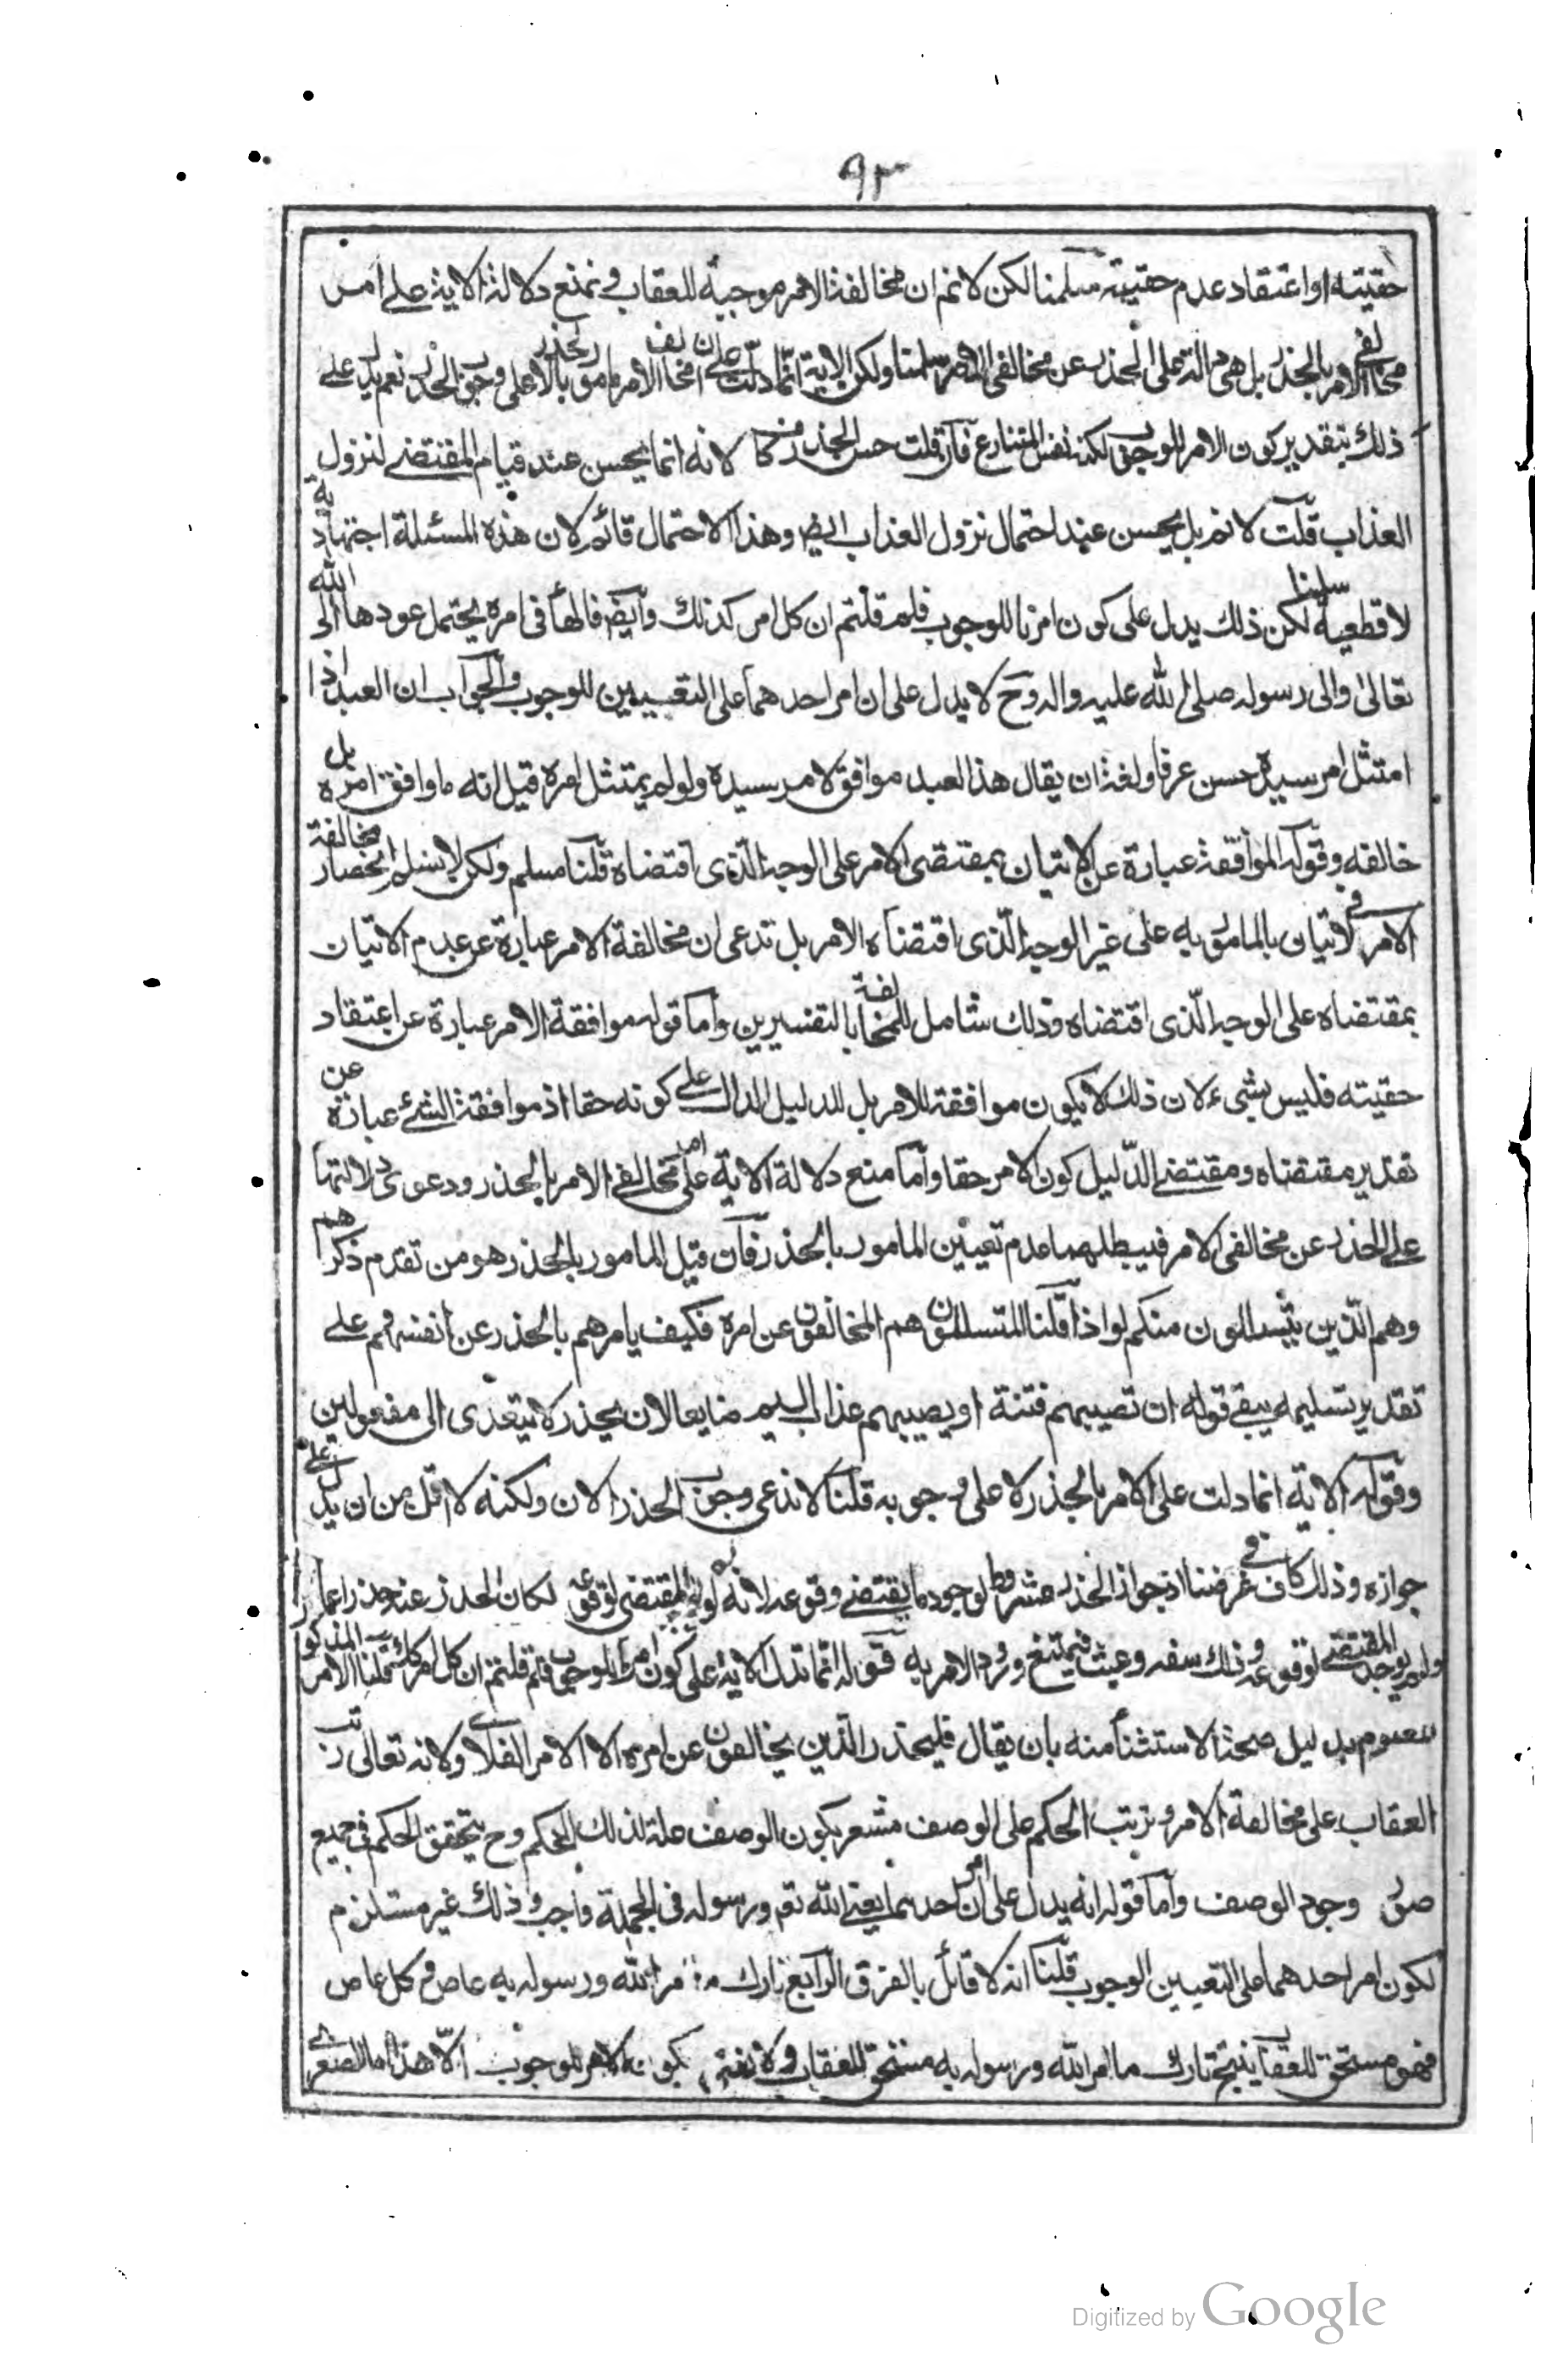 ٩٣
حقيته او اعتقاد عدم حقيته سلمنا لكن لا نم ان مخالفة الامر موجبة للعقاب و نمنع دلالة الاية على امر
مخالفى الامر بالحذر بل هى دالة على الحذر عن مخالفى الامر سلمنا ولكن الاية انما دلت على ان مخالف الامر مامور بالحذر لا على وجوب الحذر نعم يدل على
ذلك بتقدير كون الامر للوجوب لكنه نفس المتنازع فان قلت حسن الحذر كاف لانه انما يحسن عند قيام المقتضى لنزول
العذاب قلت لا نم بل يحسن عند احتمال نزول العذاب ايض وهذا الاحتمال قائم لان هذه المسئلة اجتهادية
لا قطعية سلمنا لكن ذلك يدل على كون امرنا للوجوب فلم قلتم ان كل امر كذلك وايض فالهاء فى امره يحتمل عودها الى الله
تعالى والى رسوله صلى الله عليه واله وح لا يدل على ان امر احدهما على التعيين للوجوب والجواب ان العبد اذا
امتثل امر سيده حسن عرفا ولغة ان يقال هذا العبد موافق لامر سيده ولو لم يمتثل امره قيل انه ما وافق امره بل
خالفه وقوله الموافقة عبارة عن الاتيان بمقتضى الامر على الوجه الذى اقتضاه قلنا مسلم ولكن لا نسلم انحصار مخالفة
الامر فى الاتيان بالمامور به على غير الوجه الذى اقتضاه الامر بل ندعى ان مخالفة الامر عبارة عن عدم الاتيان
بمقتضاه على الوجه الذى اقتضاه وذلك شامل للمخالفة بالتفسيرين واما قوله موافقة الامر عبارة عن اعتقاد
حقيته فليس بشىء لان ذلك لا يكون موافقة للامر بل للدليل الدال على كونه حقا اذ موافقة الشئ عبارة عن
تقدير مقتضاه ومقتضى الدليل كون الامر حقا واما منع دلالة الاية على امر مخالفى الامر بالحذر ودعوى دلالتها
على الحذر عن مخالفى الامر فيبطلهما عدم تعيين المامور بالحذر فان قيل المامور بالحذر هو من تقدم ذكرهم
وهم الذين يتسللون منكم لواذا قلنا المتسللون هم المخالفون عن امره فكيف يامرهم بالحذر عن انفسهم على
تقدير تسليمه يبقى قوله ان تصيبهم فتنة او يصيبهم عذاب اليم ضايعا لان يحذر لا يتعدى الى مفعولين
وقوله الاية انما دلت على الامر بالحذر لا على وجوبه قلنا لا ندعى وجوب الحذر الان ولكنه لا اقل من ان يدل على
جوازه وذلك كاف فى غرضنا اذ جواز الحذر مشروط لوجود ما يقتضى وقوعه لانه لو لم يوجد المقتضى لوقوعه لكان الحذر عنه حذرا عما
لم يوجد المقتضى لوقوعه وذلك سفه وعبث فيمتنع ورود الامر به قوله انما تدل الاية على كون امرنا للوجوب فلم قلتم ان كل امر كذلك قلنا الامر المذكور
للعموم بدليل صحة الاستثناء منه بان يقال فليحذر الذين يخالفون عن امره الا الامر الفلانى ولانه تعالى رتب
العقاب على مخالفة الامر وترتب الحكم على الوصف مشعر بكون الوصف علة لذلك الحكم وح يتحقق الحكم فى جميع
صور وجود الوصف واما قوله انه يدل على ان امر احدهما يعنى الله تعم ورسوله فى الجملة واجب وذلك غير مستلزم
لكون امر احدهما على التعيين الوجوب قلنا انه لا قائل بالفرق الرابع تارك ما امر الله ورسوله به عاص وكل عاص
فهو مستحق للعقاب ينتج تارك ما امر الله ورسوله به مستحق للعقاب ولا نعنى بكون الامر للوجوب الا هذا اما الصغرى
Digitized by Google